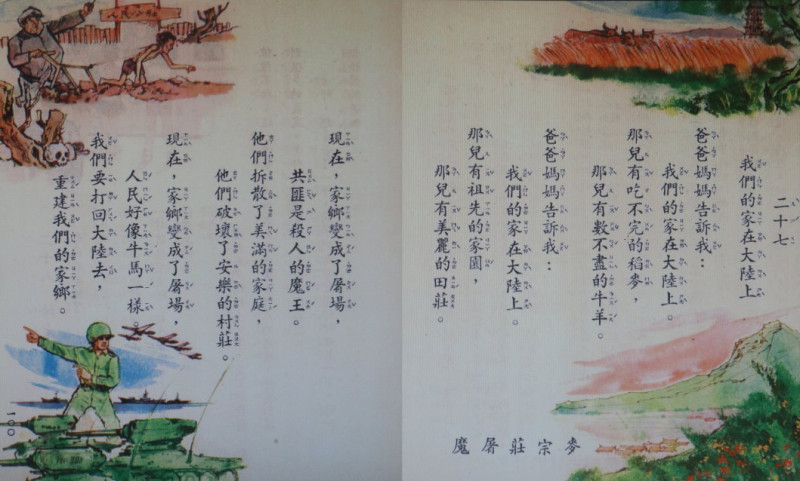 二十七
我們的家在大陸上
爸爸媽媽告訴我：
我們的家在大陸上。
那兒有吃不完的稻麥，
那兒有數不盡的牛羊。
爸爸媽媽告訴我：
我們的家在大陸上。
那兒有祖先的家園，
那兒有美麗的田莊。
麥宗莊屠魔
現在，家鄉變成了屠場，
共匪是殺人的魔王。
他們拆散了美滿的家庭，
他們破壞了安樂的村莊。
現在，家鄉變成了屠場，
人民好像牛馬一樣。
我們要打回大陸去，
重建我們的家鄉。
人民公社
100